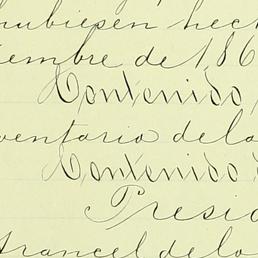 hubiesen hech
iembre de 186
Contenido,
ventario de la
Contenido
Presid
Arancel de lo